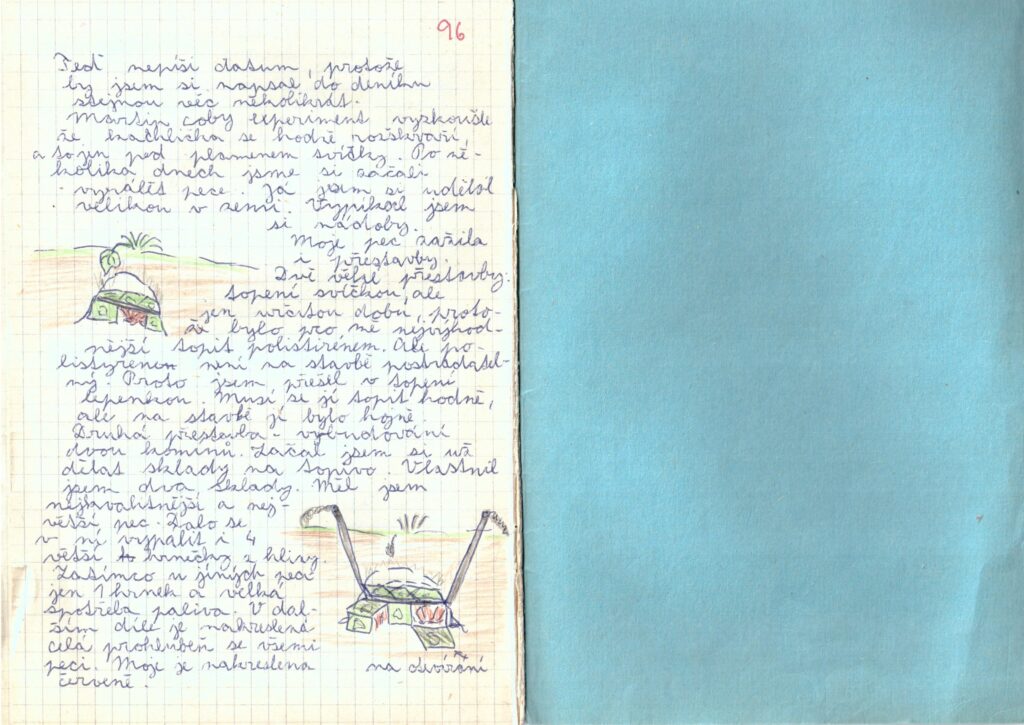 96
Teď nepíši datum, protože
by jsem si napsal do deníku
stejnou věc několikrát.
Martin coby experiment vyzkoušel
že kachlička se hodně rozškvaří,
a to jen pod plamenem svíčky. Po ně-
kolika dnech jsme si začali
vyrábět pece. Já jsem si udělal
velikou v zemi. Vypikal jsem
si nádoby.
Moje pec zažila
i přestavby.
Dvě větší přestavby.
topení svíčkou, ale
jen určitou dobu, proto-
že bylo pro mě nejvýhod-
nější topit polistirénem. Ale po-
listyrenen není na stavbě postrádatel-
ný. Proto jsem přešel v topení
lepenkou. Musí se jí topit hodně,
ale na stavbě jí bylo hojně.
Druhá přestavba - vybudování
dvou komínů. Začal jsem si už
dělat sklady na topivo. Vlastnil
jsem dva sklady. Měl jsem
nejkvalitnější a nej-
větší pec. Dalo se
v ní vypálit i 4
větší hrnečky z hlíny.
Zatímco u jiných pecí
jen 1 hrnek a velká
spotřeba paliva. V dal-
ším díle je nakreslená
celá prohlubeň se všemi
peci. Moje je nakreslena
červeně.
na otvírání